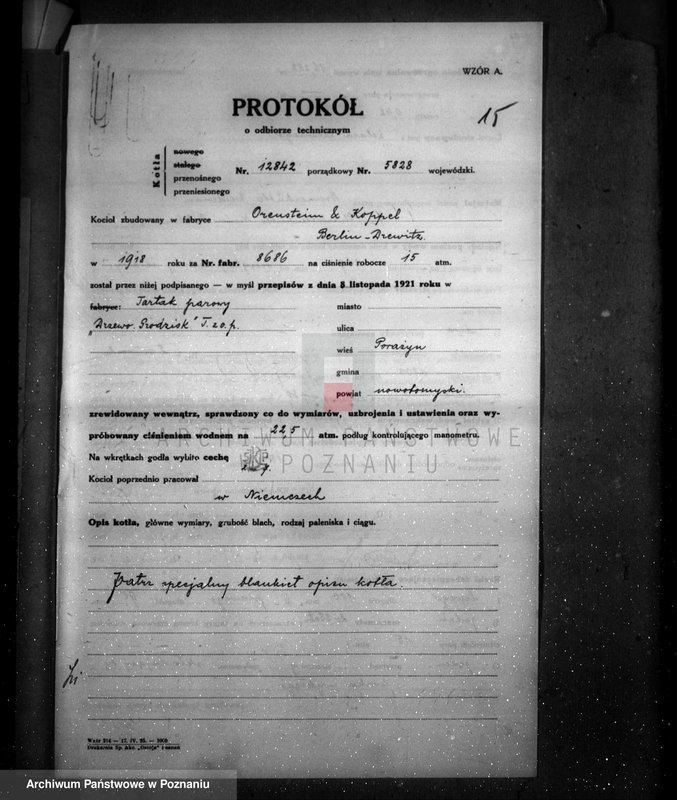 WZÓR A.
15
PROTOKÓŁ
o odbiorze technicznym
Kotła
nowego
stałego
przenośnego
przeniesionego
Nr. 12842 porządkowy Nr. 5828 wojewódzki.
Kocioł zbudowany w fabryce Orenstein & Koppel
Berlin-Drewitz
w 1918 roku za Nr. fabr. 8686 na ciśnienie robocze 15 atm.
został przez niżej podpisanego — w myśl przepisów z dnia 8 listopada 1921 roku w
fabryce: Tartak parowy
miasto
„Drzewo Grodzisk" T. z o. p.
ulica
wieś Porażyn
gmina
powiat nowotomyski.
zrewidowany wewnątrz, sprawdzony co do wymiarów, uzbrojenia i ustawienia oraz wy-
próbowany ciśnieniem wodnem na 22,5 atm. podług kontrolującego manometru.
ARCHIWUM PAŃSTWOWE
W POZNANIU
Na wkrętkach godła wybito cechę
Kocioł poprzednio pracował
w Niemczech
Opis kotła, główne wymiary, grubość blach, rodzaj paleniska i ciągu.
Patrz specjalny blankiet opisu kotła.
Wzór 214 — 17. IV. 25. — 1000
Drukarnia Sp. Akc. „Ostoja"
Archiwum Państwowe w Poznaniu